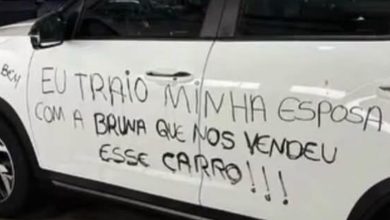 EU TRAIO MINHA ESPOSA
COM A BRUNA QUE NOS VENDEU
ESSE CARRO!!!